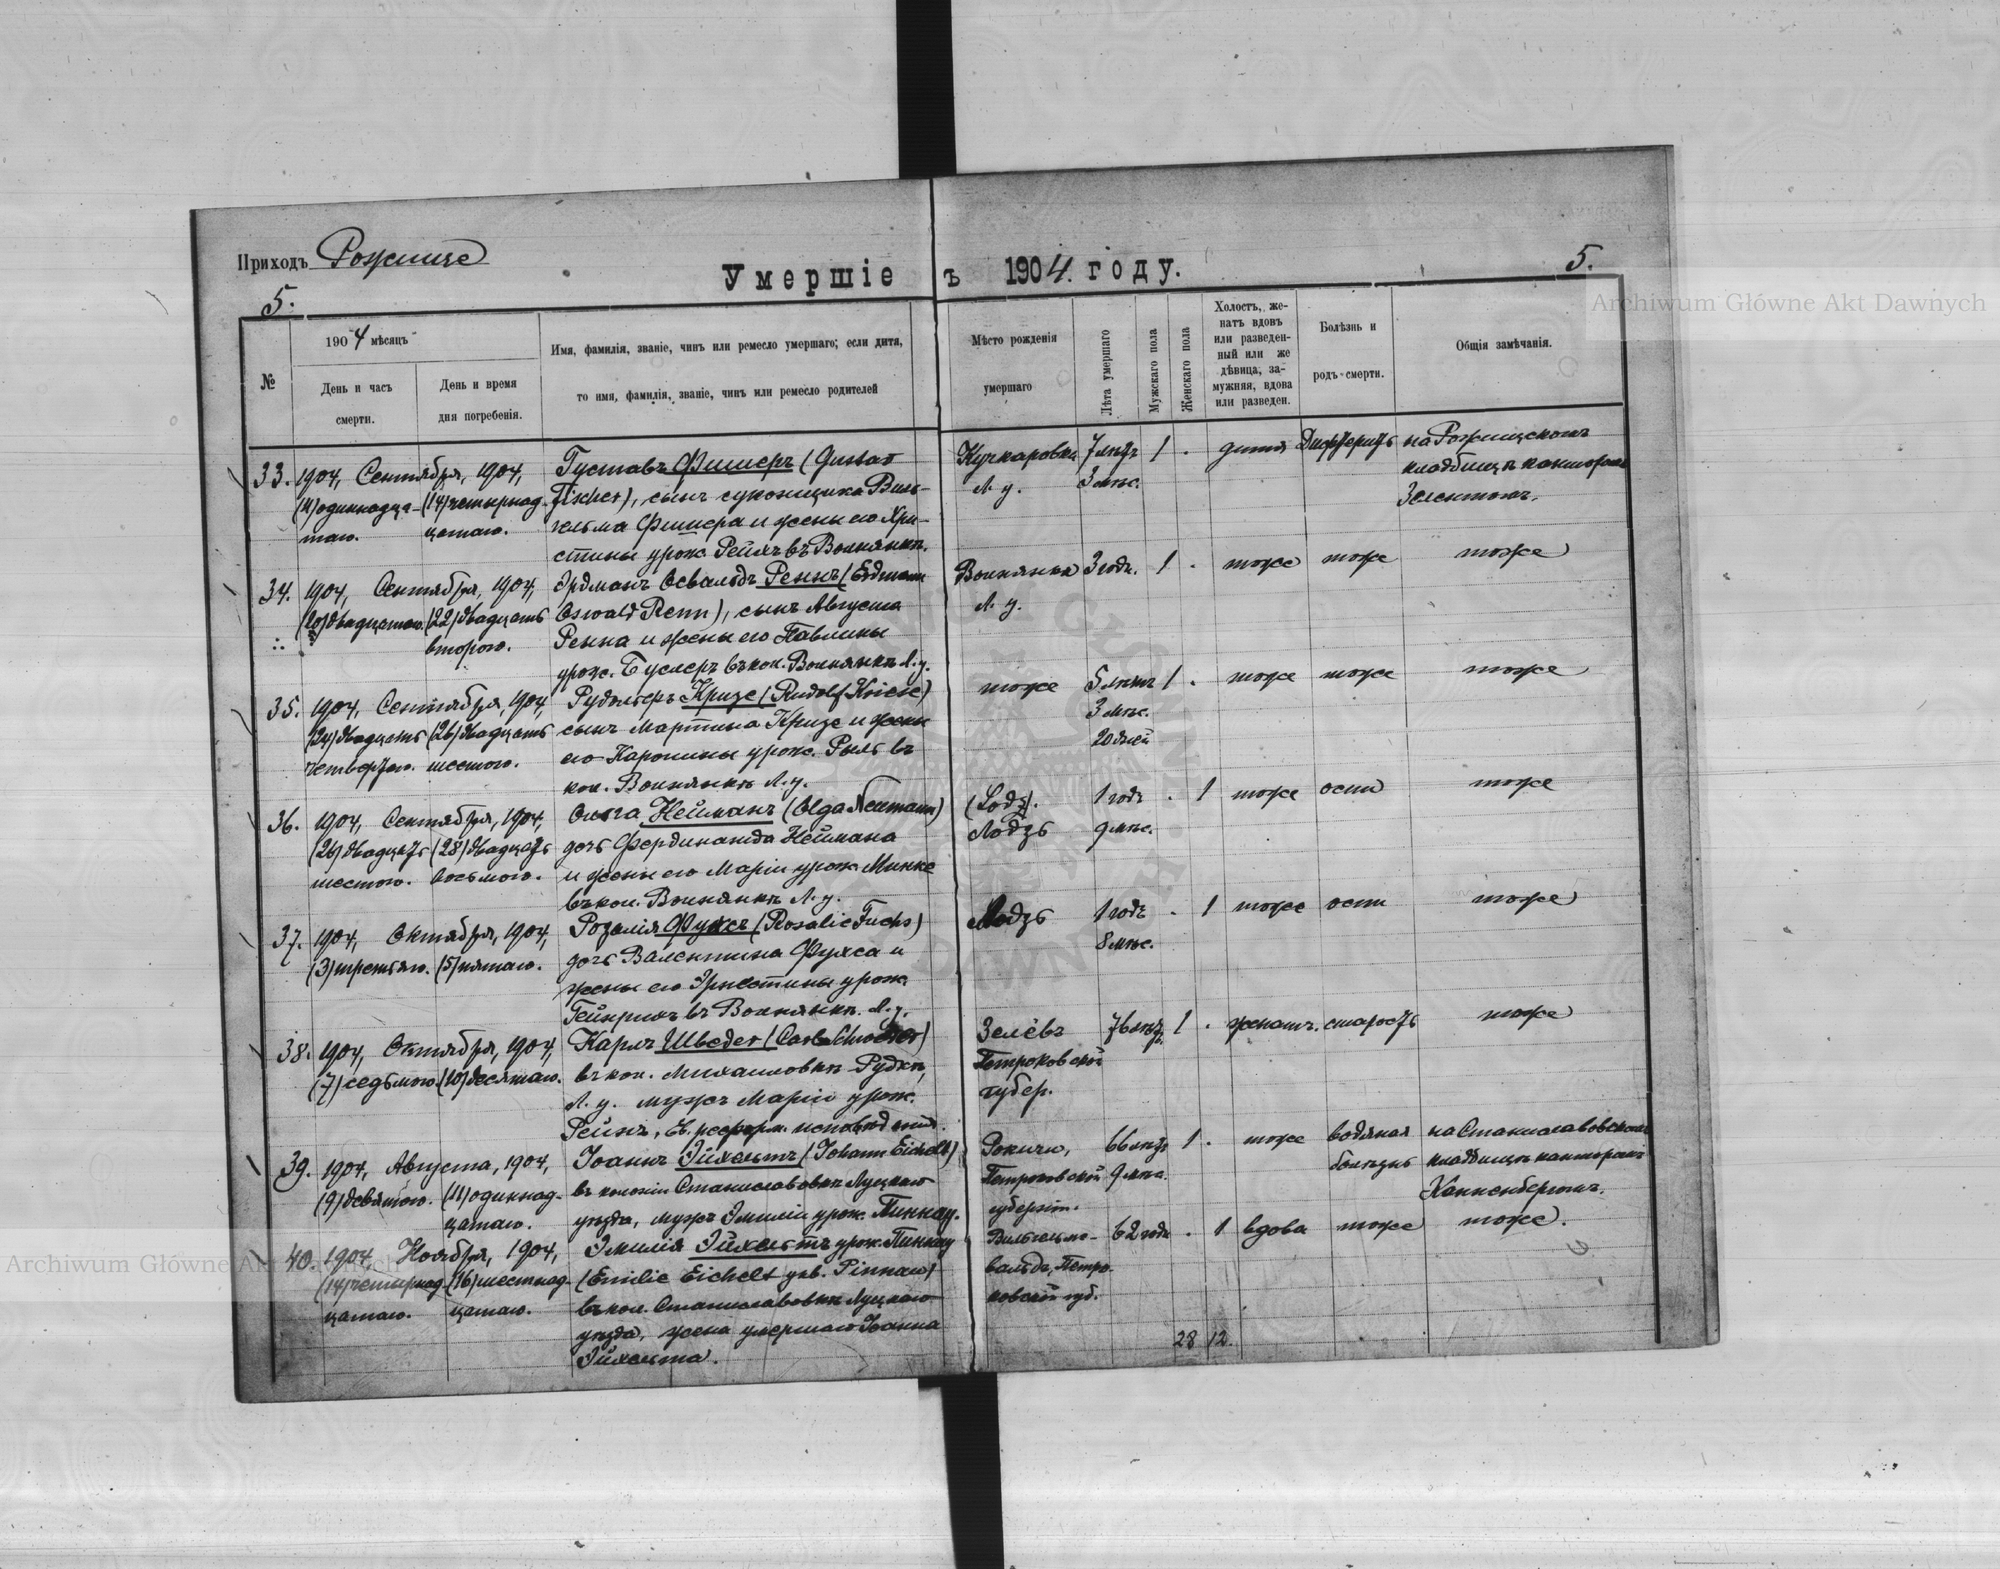 Приходъ Рожище
Умершіе въ 1904. году.
5.
5.
Archiwum Główne Akt Dawnych
№
1904 мѣсяцъ
День и часъ смерти.
День и время дня погребенія.
Имя, фамилія, званіе, чинъ или ремесло умершаго; если дитя,
то имя, фамилія, званіе, чинъ или ремесло родителей
Мѣсто рожденія умершаго
Лѣта умершаго
Мужскаго пола
Женскаго пола
Холостъ, же-
натъ вдовъ
или разведен-
ный или же
дѣвица, за-
мужняя, вдова
или разведен.
Болѣзнь и
родъ смерти.
Общія замѣчанія.
33. 1904, Сентября, 1904,
(11) одиннадца- (14) четырнад-
таго. цатаго.
Густавъ Фишеръ (Gustav
Fischer), сынъ суконщика Виль-
гельма Фишера и жены его Хри-
стины урож. Рейхъ въ Волнянкѣ.
Кучкаровка 7 лѣтъ 1 . дитя Дифтеритъ на Рожищскомъ
Л. у. 3 мѣс. кладбищѣ канторомъ
Зелентомъ.
34. 1904, Сентября, 1904,
(20) двадцатаго. (22) двадцать
второго.
Эрдманъ Освальдъ Реннъ (Erdmann
Oswald Renn), сынъ Августа
Ренна и жены его Павлины
урож. Буслеръ въ кол. Волнянкѣ Л. у.
Волнянка 3 года. 1 . тоже тоже тоже
Л. у.
35. 1904, Сентября, 1904,
(24) двадцать (26) двадцать
четвертаго. шестого.
Рудольфъ Кризе (Rudolf Kriese)
сынъ Мартина Кризе и жены
его Каролины урож. Рыль въ
кол. Волнянкѣ Л. у.
тоже 5 лѣтъ 1 . тоже тоже тоже
3 мѣс.
20 дней
36. 1904, Сентября, 1904,
(26) двадцать (28) двадцать
шестого. восьмого.
Ольга Нейманъ (Olga Neumann)
дочь Фердинанда Неймана
и жены его Маріи урож. Минке
въ кол. Волнянкѣ Л. у.
(Lodz). 1 годъ . 1 тоже оспы тоже
Лодзь 9 мѣс.
37. 1904, Октября, 1904,
(3) третьяго. (5) пятаго.
Розалія Фуксъ (Rosalie Fuchs)
дочь Валентина Фукса и
жены его Эрнестины урож.
Гейнрихъ въ Волнянкѣ. Л. у.
Лодзь 1 годъ . 1 тоже оспы тоже
8 мѣс.
38. 1904, Октября, 1904,
(7) седьмого. (10) десятаго.
Карлъ Шведеr (Carl Schroeder)
въ кол. Михаиловкѣ Рудкѣ,
Л. у. мужъ Маріи урож.
Рейнъ, Ев. реформ.
Зелёвъ 76 лѣтъ. 1 . женатъ. старость тоже
Петроковской
губер.
39. 1904, Августа, 1904,
(9) девятаго. (11) одиннад-
цатаго.
Іоаннъ Эйхельтъ (Johann Eichelt)
въ колоніи Станиславовкѣ Луцкаго
уѣзда, мужъ Эмиліи урож. Пиннау.
Рокичи, 66 лѣтъ 1 . тоже водяная на Станиславовскомъ
Петроковской 9 мѣс. болѣзнь кладбищѣ канторомъ
губерніи. Конненбергомъ.
40. 1904, Ноября, 1904,
(14) четырнад- (16) шестнад-
цатаго. цатаго.
Эмилія Эйхельтъ урож. Пиннау
(Emilie Eichelt geb. Pinnau)
въ кол. Станиславовкѣ Луцкаго
уѣзда, жена умершаго Іоанна
Эйхельта.
Вильгельмс- 62 года . 1 вдова тоже тоже.
вальдъ, Петро-
ковской губ.
28 12.
Archiwum Główne Akt Dawnych